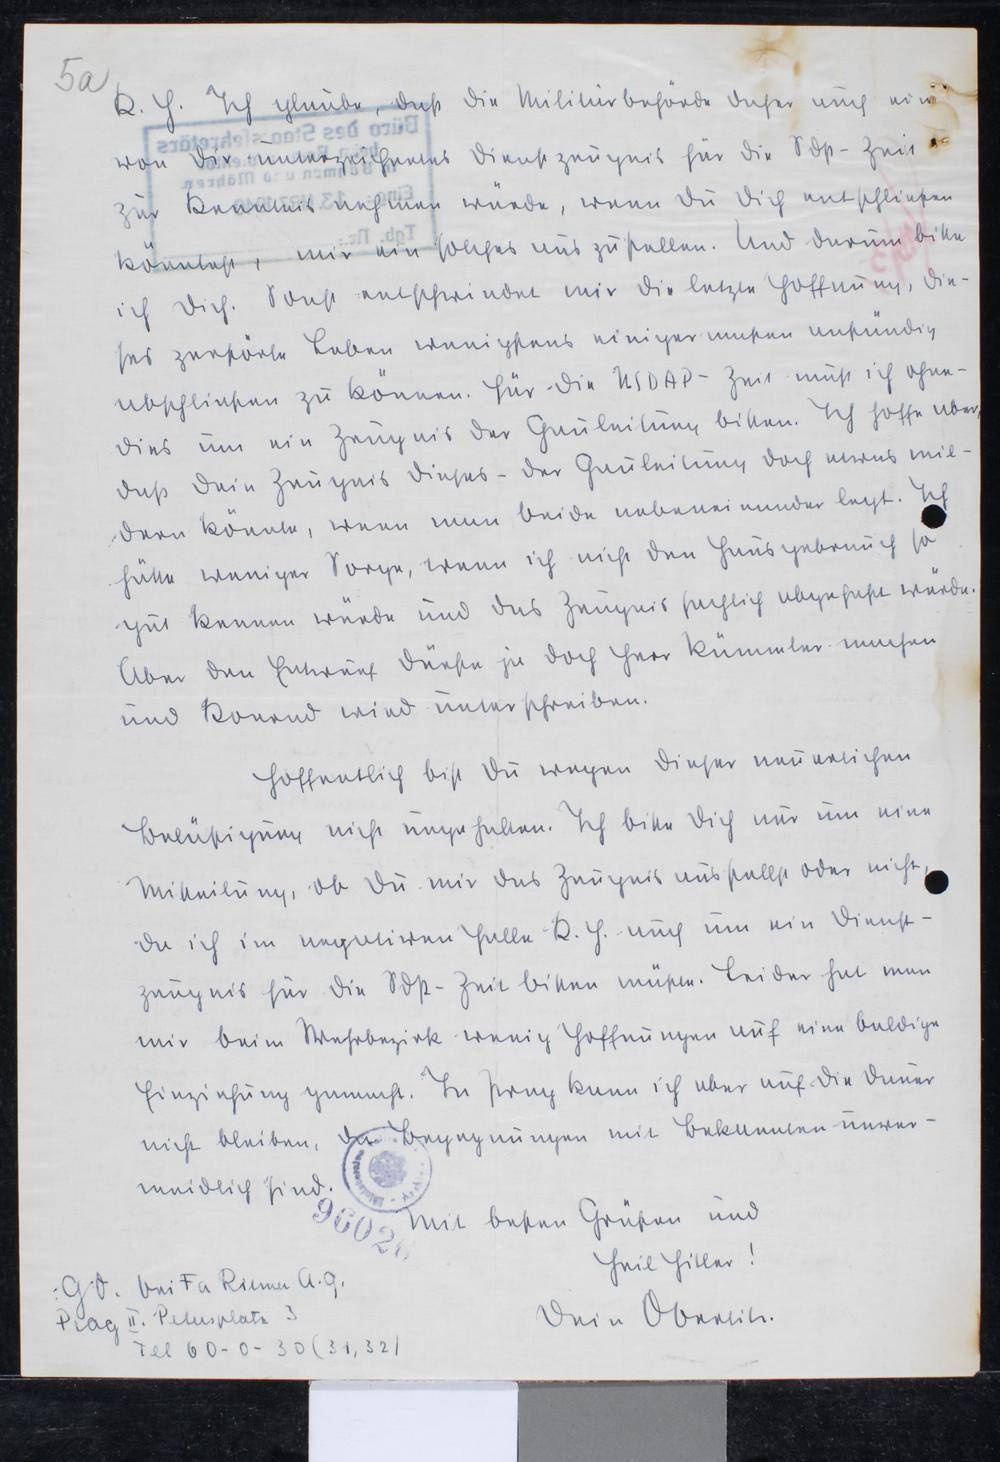 5a
K. H. Ich glaube, daß die Militärbehörde daher auch ein
von Dir unterzeichnetes Dienstzeugnis für die SdP-Zeit
zur Kenntnis nehmen würde, wenn Du Dich entschließen
könntest, mir ein solches auszustellen. Und darum bitte
ich Dich. Sonst entschwindet mir die letzte Hoffnung, die-
ses zerstörte Leben wenigstens einigermaßen anständig
abschließen zu können. Für die NSDAP-Zeit muß ich ohne-
dies um ein Zeugnis der Gauleitung bitten. Ich hoffe aber,
daß Dein Zeugnis dieses der Gauleitung doch etwas mil-
dern könnte, wenn man beide nebeneinander legt. Ich
hätte weniger Sorge, wenn ich nicht den Hausgebrauch so
gut kennen würde und das Zeugnis sachlich abgefaßt würde.
Aber den Entwurf dürfte ja doch Herr Kümmler machen
und Konrad wird unterschreiben.
Hoffentlich bist Du wegen dieser neuerlichen
Belästigung nicht ungehalten. Ich bitte Dich nur um eine
Mitteilung, ob Du mir das Zeugnis ausstellst oder nicht,
da ich im negativen Falle K. H. auch um ein Dienst-
zeugnis für die SdP-Zeit bitten müßte. Leider hat man
mir beim Wehrbezirk wenig Hoffnungen auf eine baldige
Einziehung gemacht. In Prag kann ich aber auf die Dauer
nicht bleiben, da Begegnungen mit Bekannten unver-
meidlich sind.
Mit besten Grüßen und
Heil Hitler!
Dein Oberlik.
96026
bei Fa
A.G.
Prag II. Petersplatz 3
Tel 60-0-30 (31, 32)
Büro des Staatssekretärs
Böhmen und Mähren
Tgb. Nr.: